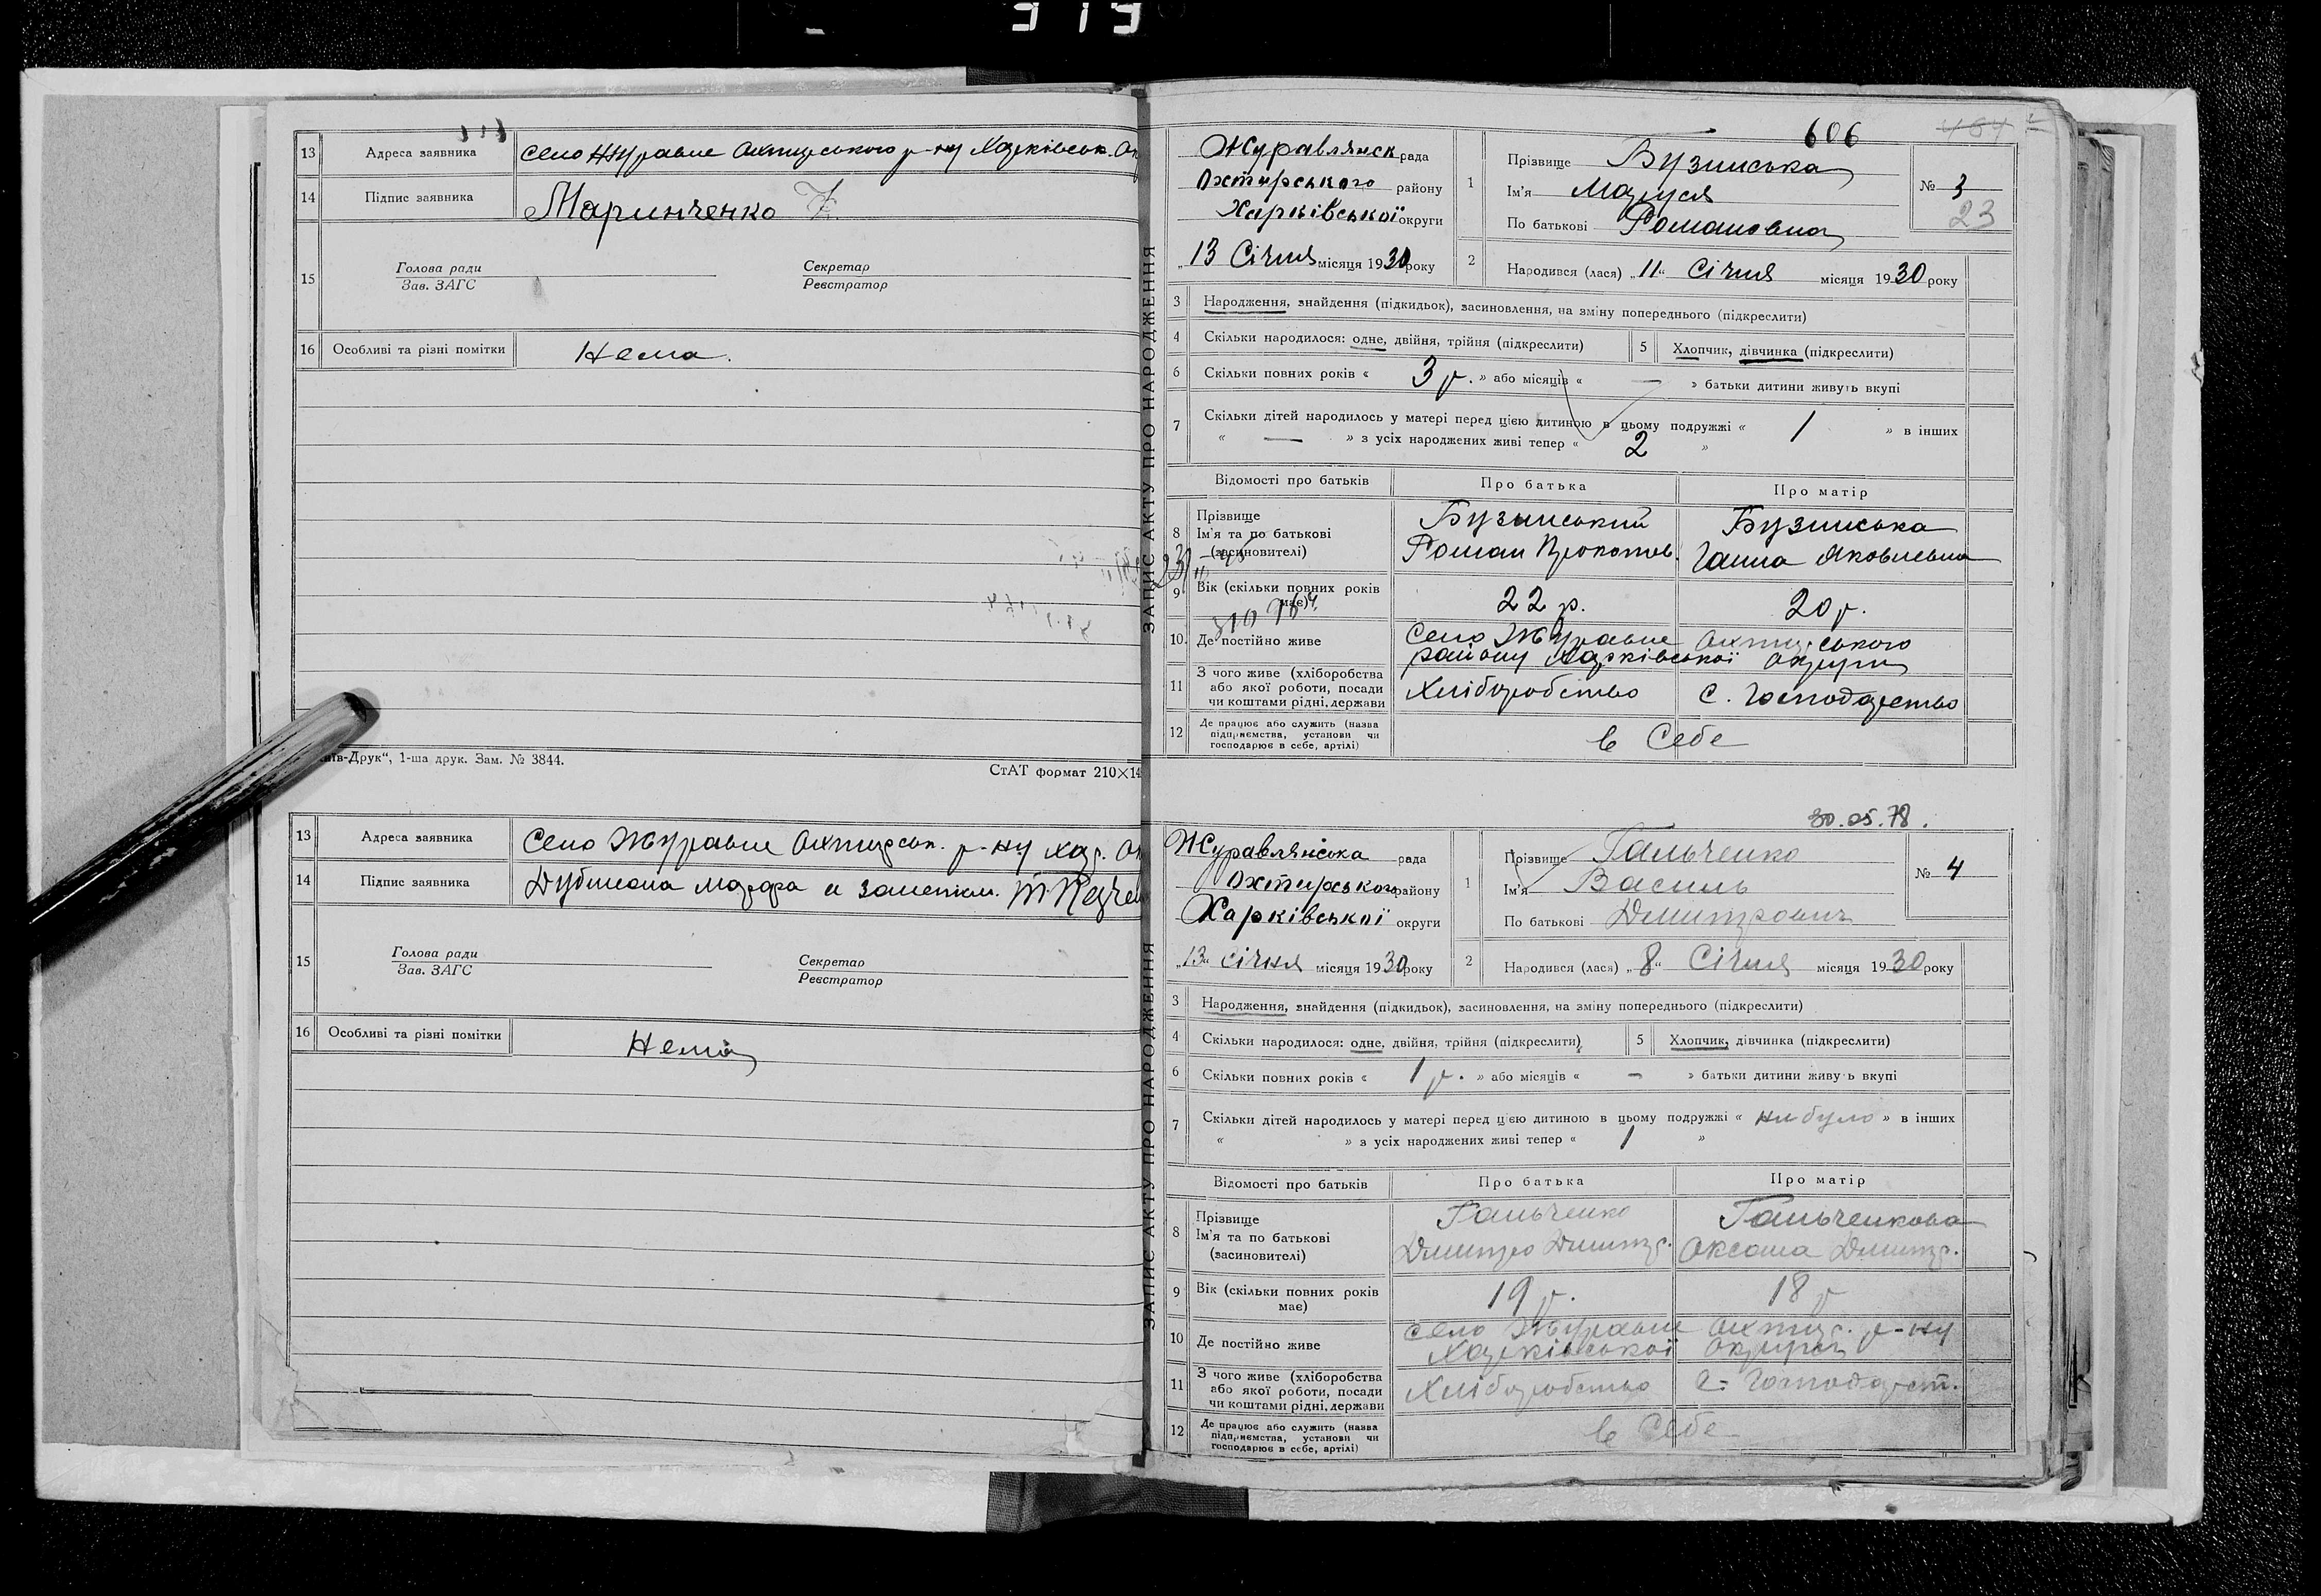 313
13 Адреса заявника Село Журавне Охтирського р-ну Харківськ. Ок
14 Підпис заявника Маринченко
15 Голова ради Зав. ЗАГС Секретар Реєстратор
16 Особливі та різні помітки Нема.
-Друк“, 1-ша друк. Зам. № 3844.
СтАТ формат 210×14
13 Адреса заявника Село Журавне Охтирськ. р-ну Хар. Ок
14 Підпис заявника
15 Голова ради Зав. ЗАГС Секретар Реєстратор
16 Особливі та різні помітки Нема
ЗАПИС АКТУ ПРО НАРОДЖЕННЯ
606
Журавлянськ рада
Охтирського району
Харківської округи
„13 Січня місяця 1930 року
1 Прізвище Бузинська
Ім'я Маруся
По батькові Романовна
№ 3
23
2 Народився (лася) „11“ Січня місяця 1930 року
3 Народження, знайдення (підкидьок), засиновлення, на зміну попереднього (підкреслити)
4 Скільки народилося: одне, двійня, трійня (підкреслити) 5 Хлопчик, дівчинка (підкреслити)
6 Скільки повних років « 3 р. » або місяців « — » батьки дитини живуть вкупі
7 Скільки дітей народилось у матері перед цією дитиною в цьому подружжі « 1 » в інших
« — » з усіх народжених живі тепер « 2 »
Відомості про батьків Про батька Про матір
8 Прізвище Бузинський Бузинська
Ім'я та по батькові (засиновителі) Роман Прокопов. Ганна Яковлевна
9 Вік (скільки повних років має) 22 р. 20 р.
10. Де постійно живе Село Журавне Охтирського
району Харківської Округи
11 З чого живе (хліборобства
або якої роботи, посади
чи коштами рідні, держави Хліборобство С. Господарство
12 Де працює або служить (назва
підприємства, установи чи
господарює в себе, артілі) в Себе
30.05.78.
ЗАПИС АКТУ ПРО НАРОДЖЕННЯ
Журавлянська рада
Охтирського району
Харківської округи
„13“ січня місяця 1930 року
1 Прізвище Гальченко
Ім'я Василь
По батькові Дмитрович
№ 4
2 Народився (лася) „8“ Січня місяця 1930 року
3 Народження, знайдення (підкидьок), засиновлення, на зміну попереднього (підкреслити)
4 Скільки народилося: одне, двійня, трійня (підкреслити) 5 Хлопчик, дівчинка (підкреслити)
6 Скільки повних років « 1 р. » або місяців « — » батьки дитини живуть вкупі
7 Скільки дітей народилось у матері перед цією дитиною в цьому подружжі « не було » в інших
« » з усіх народжених живі тепер « 1 »
Відомості про батьків Про батька Про матір
8 Прізвище Гальченко Гальченкова
Ім'я та по батькові (засиновителі) Дмитро Дмитр. Оксана Дмитр.
9 Вік (скільки повних років має) 19 р. 18 р
10 Де постійно живе Село Журавне Охтир. р-ну
Харківської Округи
11 З чого живе (хліборобства
або якої роботи, посади
чи коштами рідні, держави Хліборобство С. Господарст.
12 Де працює або служить (назва
підприємства, установи чи
господарює в себе, артілі) в Себе